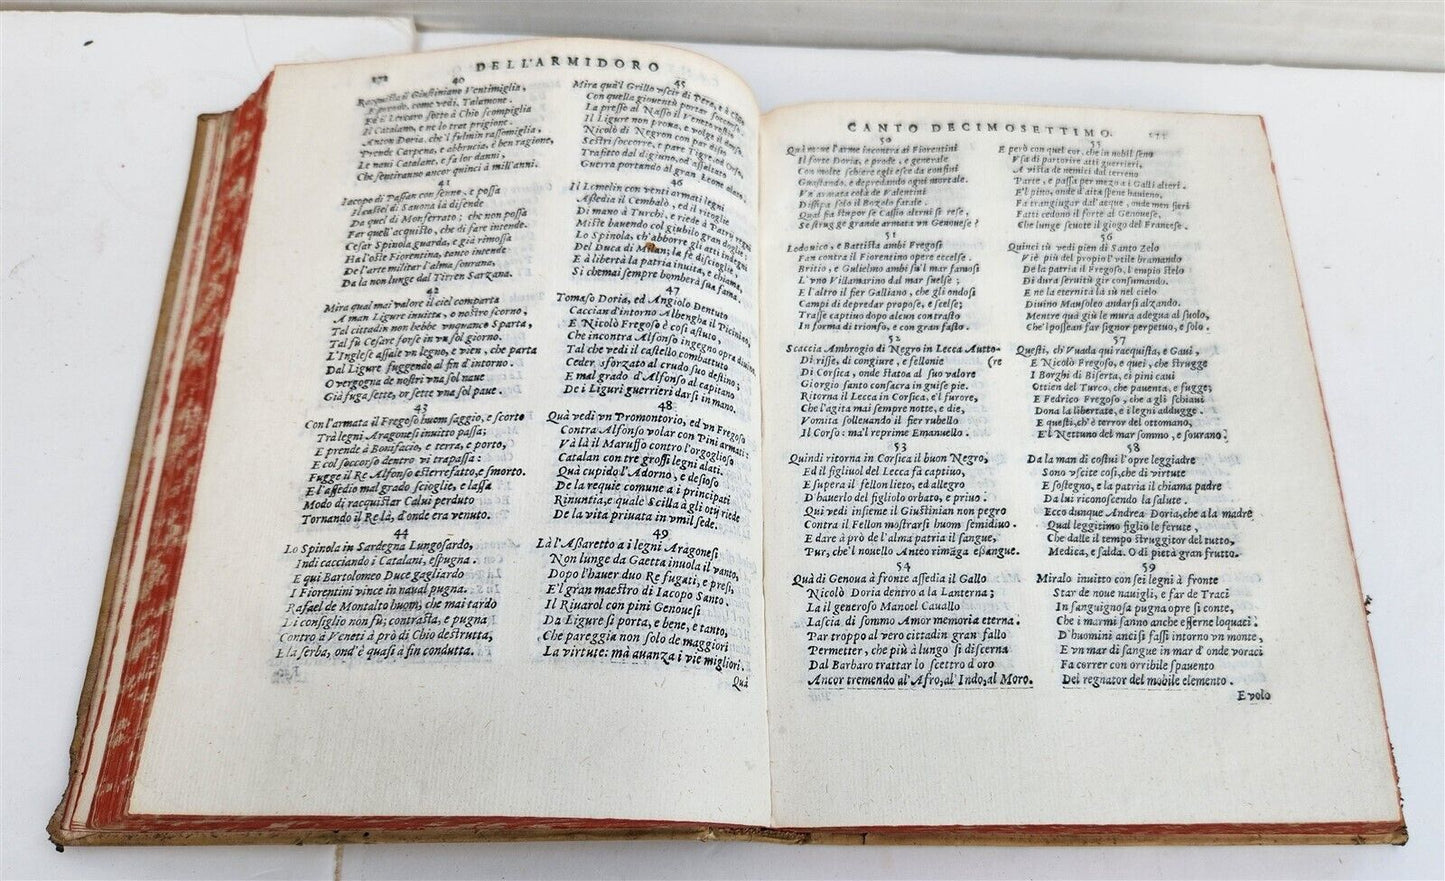 272
DELL'ARMIDORO
40
Racquista il Giustiniano Ventimiglia,
E prende, come vedi, Talamone.
Fe il Lercaro sotto à Chio scompiglia
Il Catalano, e ne lo trae prigione.
Anton Doria, che'l fulmin rassomiglia,
Prende Carpena, e abbrucia, e ben ragione,
Le navi Catalane, e fa lor danni,
Che sentiranno ancor quinci à mill'anni.
41
Iacopo di Passan con senno, e possa
Hcastel di Sauona là difende
Da quel di Monferrato; che non possa
Far quell'acquisto, che di fare intende.
Cesar Spinola guarda, e già rimossa
Ha l'oste Fiorentina, tanto intende
De l'arte militar l'alma sourana,
Da la non lunge dal Tirren Sarzana.
42
Mira qual mai valore il ciel comparta
A man Ligure inuitta, o nostro scorno,
Tal cittadin non hebbe vnquanco Sparta,
Tal fù Cesare forse in vn sol giorno.
L'Inglese assale vn legno, e vien, che parta
Dal Ligure fuggendo al fin d'intorno.
O vergogna de nostri vna sol naue
Già fuga sette, or sette vna sol paue.
43
Con l'armata il Fregoso huom saggio, e scorto
Trà legni Aragonesi inuitto passa;
E prende à Bonifacio, e terra, e porto,
E col soccorso dentro vi trapassa:
Fugge il Re Alfonso esterrefatto, e smorto.
E l'assedio mal grado scioglie, e lassa
Modo di racquistar Calui perduto
Tornando il Re là, d'onde era venuto.
44
Lo Spinola in Sardegna Lungosardo,
Indi cacciando i Catalani, espugna.
E qui Bartolomeo Duce gagliardo
I Fiorentini vince in naual pugna.
Rafael de Montalto huom, che mai tardo
Di consiglio non fù; contrasta, e pugna
Contro à Veneti à prò di Chio destrutta,
E la serba, ond'è quasi à fin condutta.
45
Mira quà'l Grillo vscir di Pera, e à Chio
Con quella giouentù portar soccorso.
La presso al Nasso il Veneto restio
Il Ligure non proua, e volge il dorso.
Nicolò di Negron con par disio
Sestri soccorre, e pare Tigre, od Orso,
Trafitto dal digiuno, od assaltato
Guerra portando al gran Leone alato.
46
Il Lomelin con venti armati legni
Assedia il Cembalò, ed il ritoglie
Di mano à Turchi, e riede à Patrij regni
Miste hauendo col giubilo gran doglie;
Lo Spinola, ch'abborre gli atti indegni
Del Duca di Milan; la fè discioglie,
E à libertà la patria inuita, e chiama,
Si che mai sempre bomberà sua fama.
47
Tomaso Doria, ed Angiolo Dentuto
Caccian d'intorno Albengha il Picinino,
E Nicolò Fregoso è così astuto,
Che incontra Alfonso ingegno opra diuino,
Tal che vedi il castello combattuto
Ceder sforzato al crudo suo destino;
E mal grado d'Alfonso al capitano
De i Liguri guerrieri darsi in mano.
48
Quà vedi vn Promontorio, ed vn Fregoso
Contra Alfonso volar con Pini armati:
Và là il Maruffo contro l'orgoglioso
Catalan con tre grossi legni alati.
Quà cupido l'Adorno, e desioso
De la requie comune a i principati
Rinuntia, e quale Scilla à gli otij riede
De la vita priuata in vmil sede.
49
Là l'Assaretto a i legni Aragonesi
Non lunge da Gaetta inuola il vanto,
Dopo l'hauer duo Re fugati, e presi,
E'l gran maestro di Iacopo Santo.
Il Riuarol con pini Genouesi
Da Ligure si porta, e bene, e tanto,
Che pareggia non solo de maggiori
La virtute: mà auanza i vie migliori.
Quà
CANTO DECIMOSETTIMO.
50
Quà moue l'arme incontra ai Fiorentini
Il forte Doria, e prode, e generale
Con molte schiere egli esce da confini
Guastando, e depredando ogni mortale.
Vn armata colà de Valentini
Dissipa solo il Bozolo fatale.
Qual fia stupor se Cassio altrui si rese,
Se strugge grande armata vn Genouese?
51
Lodouico, e Battista ambi Fregosi
Fan contra il Fiorentino opere eccelse.
Britio, e Gulielmo ambi su'l mar famosi
L'vno Villamarino dal mar suelse;
E l'altro il fier Galliano, che gli ondosi
Campi di depredar propose, e scelse;
Trasse captiuo dopo alcun contrasto
In forma di trionfo, e con gran fasto.
52
Scaccia Ambrogio di Negro in Lecca Autto-
(re
Di risse, di congiure, e fellonie
Di Corsica, onde statoa al suo valore
Giorgio santo consacra in guise pie.
Ritorna il Lecca in Corsica, e'l furore,
Che l'agita mai sempre notte, e die,
Vomita solleuando il fier rubello
Il Corso: ma'l reprime Emanuello.
53
Quindi ritorna in Corsica il buon Negro,
Ed il figliuol del Lecca fà captiuo,
E supera il fellon lieto, ed allegro
D'hauerlo del figliolo orbato, e priuo.
Qui vedi insieme il Giustinian non pegro
Contra il Fellon mostrarsi huom semidiuo.
E dare à prò de l'alma patria il sangue,
Pur, che'l nouello Anteo rimāga eßangue.
54
Quà di Genoua à fronte assedia il Gallo
Nicolò Doria dentro a la Lanterna;
La il generoso Manoel Cauallo
Lascia di sommo Amor memoria eterna.
Par troppo al vero cittadin gran fallo
Permetter, che più à lungo si discerna
Dal Barbaro trattar lo scettro d'oro
Ancor tremendo al'Afro, al'Indo, al Moro.
55
E però con quel cor, che in nobil seno
Vsa di partorire atti guerrieri,
A vista de nemici dal terreno
Parte, e passa per mezo a i Galli alteri.
E'l pino, onde d'alta spene hauieno,
Fa trangiugar dal'acque, onde men fieri
Fatti cedono il forte al Genouese,
Che lunge scuote il giogo del Francese.
56
Quinci tù vedi pien di Santo Zelo
Viè più del propio'l veile bramando
De la patria il Fregoso, l'empio stelo
Di dura seruitù gir consumando.
E ne la eternità là sù nel cielo
Diuino Mausoleo andarsi alzando.
Mentre quà giù le mura adegna al suolo,
Che'l possean far signor perpetuo, e solo.
57
Questi, ch'Vuada qui racquista, e Gaui,
E Nicolò Fregoso, e quei, che strugge
I Borghi di Biserta, ei pini caui
Ottien del Turco, che pauenta, e fugge;
E Federico Fregoso, che a gli schiaui
Dona la libertate, e i legni addugge.
E questi, ch'è terror del ottomano,
E'l Nettuno del mar sommo, e sourano.
58
Da la man di costui l'opre leggiadre
Sono vscite così, che di virtute
E sostegno, e la patria il chiama padre
Da lui riconoscendo la salute.
Ecco dunque Andrea Doria, che a la madre
Qual leggitimo figlio le ferute,
Che dalle il tempo struggitor del tutto,
Medica, e salda. O di pietà gran frutto.
59
Miralo inuitto con sei legni à fronte
Star de noue nauigli, e far de Traci
In sanguignosa pugna opre sì conte,
Che i marmi sanno anche esserne loquaci.
D'huomini ancisi fassi intorno vn monte,
E vn mar di sangue in mar d'onde voraci
Fa correr con orribile spauento
Del regnator del mobile elemento.
E volo